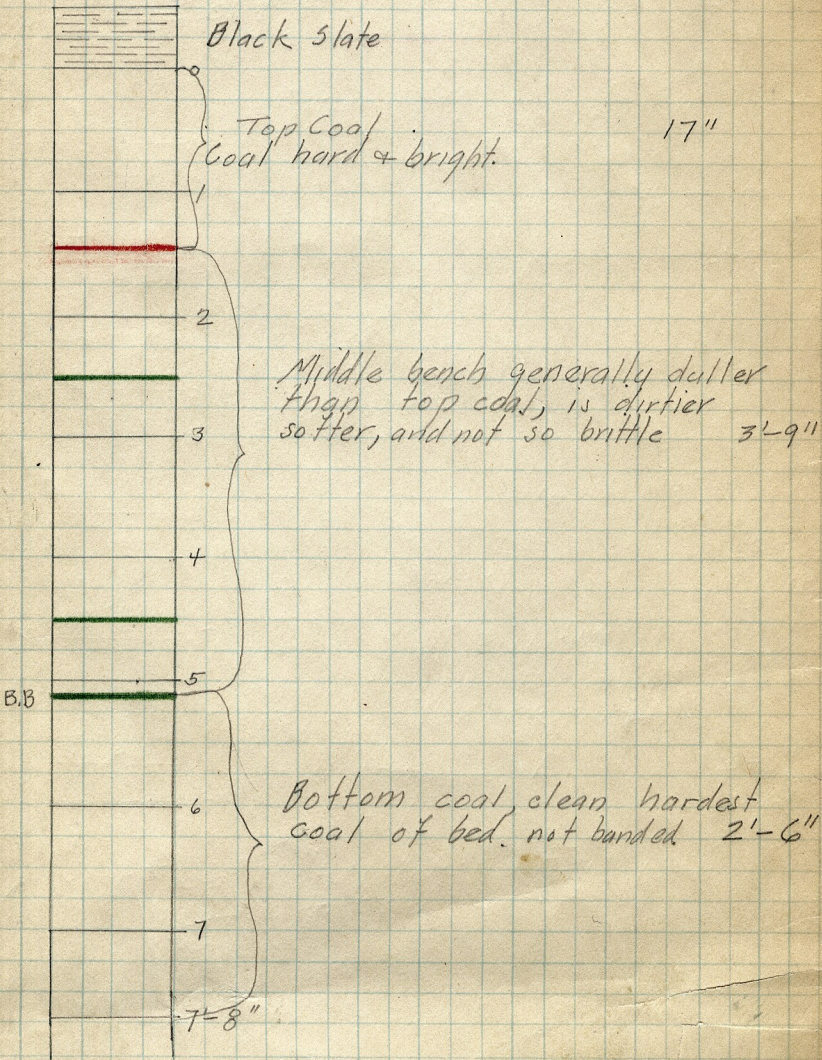 Black Slate
0
Top Coal 17"
Coal hard & bright.
1
2
Middle bench generally duller
than top coal, is dirtier
3 softer, and not so brittle 3'-9"
4
5
B.B
6 Bottom coal, clean hardest
coal of bed. not banded. 2'-6"
7
7'-8"